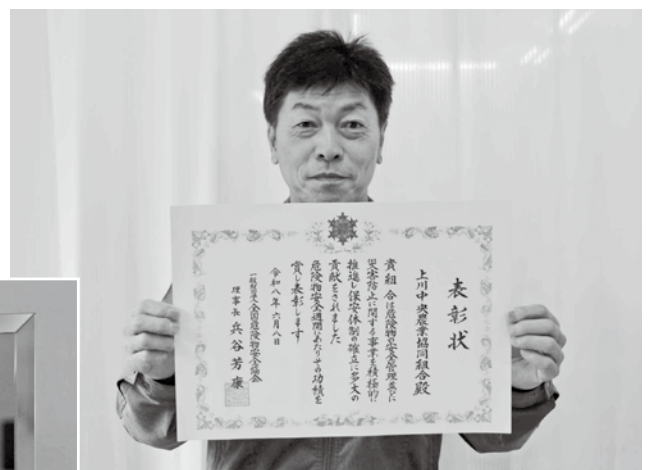 表彰状
上川中央農業協同組合殿
貴組合は危険物の安全管理並びに
災害防止に関する事業を積極的に
推進し保安体制の確立に多大の
貢献をされました
危険物安全週間にあたりその功績を
賞し表彰します
令和八年六月八日
一般財団法人全国危険物安全協会
理事長 兵谷芳康